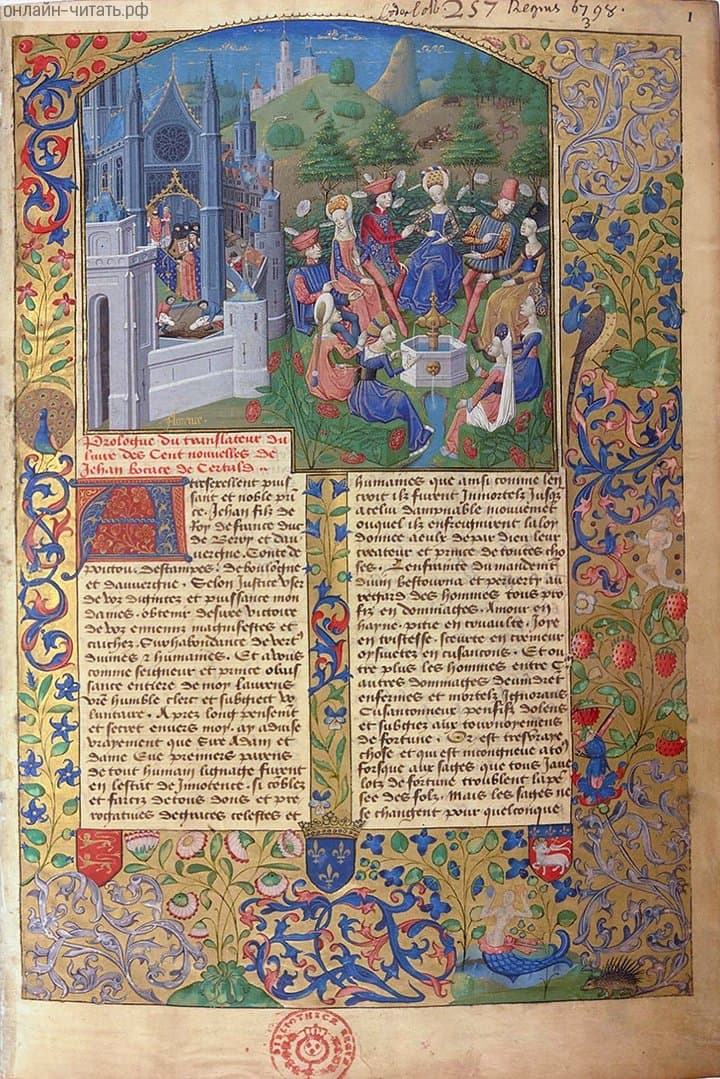 онлайн-читать.рф
257 Regius 6798.
3
1
Florence.
Prologue du translateur du
livre des Cent nouvelles de
Jehan Bocace de Certald
tresexcellent puis
sant et noble prī
ce. Jehan filz de
Roy de france duc
de Berry et dau
uergne. Conte de
poitou. destampes. de boulogne
et dauuergne. Selon Justice vser
de voz dignitez et puissance mon
daines. obtenir desiree victoire
de voz ennemis magnifestes et
cachez. Surhabondance de vert
diuines & humaines. Et a vous
comme seigneur et prince obais
sance entiere de moy laurens
vr̄e humble clerc et subgiect vo
luntaire. Apres long pensemt
et secret enuers moy. ay aduise
vrayement que Sire Adam et
dame Eue premiers parens
de tout humain lignage furent
en lestat de Innocence. si cōblez
et farciz de tous dons et pre
rogatiues de graces celestes et
humaines que ainsi comme len
croit ilz furent Immortelz Jusqz
a celui dampnable mouuement
ouquel ilz enfreignirent la loy
donnee a eulx de par dieu leur
createur et prince de toutes cho
ses. Lenfrainte du mandemt
diuin bestourna et peruerty au
regard des hommes tous pro
fiz en dommages. Amour en
hayne. pitie en cruaulte. Joye
en tristesse. seurte en cremeur
oysiuetez en cusancons. Et ou
tre plus les hommes entre
autres dommages deuindret
enfermes et mortelz Ignorans
Cusanconneux pensifz dolens
et subgiez aux tournoyemens
de fortune. Or est tresvraye
chose et qui est incongneue a to9
forsque aux sages que tous Jaue
lotz de fortune troublent la pē
see des folz. Mais les sages ne
se changent pour quelconque
BIBLIOTHECÆ REGIÆ